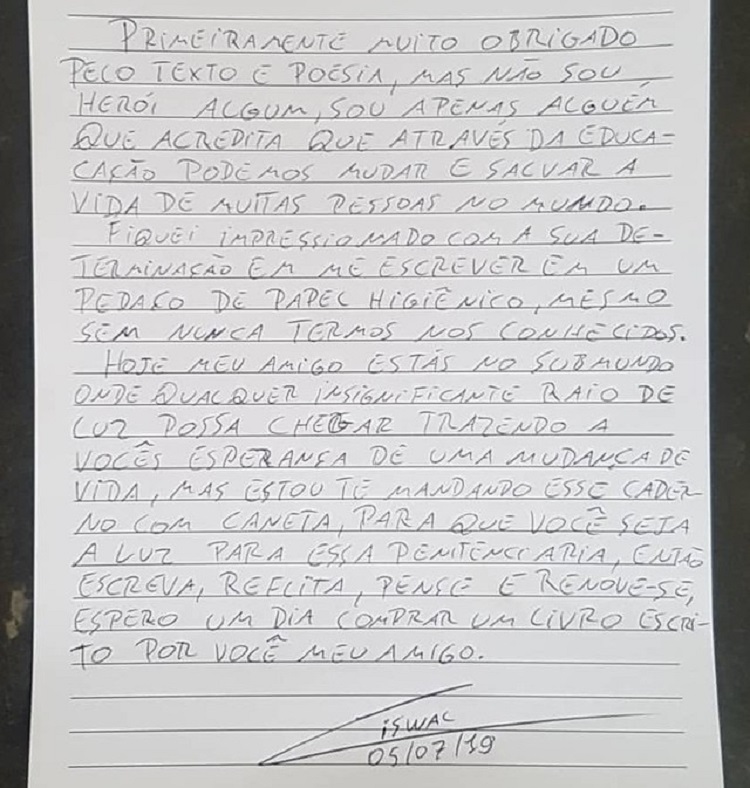 PRIMEIRAMENTE MUITO OBRIGADO
PELO TEXTO E POESIA, MAS NÃO SOU
HERÓI ALGUM, SOU APENAS ALGUÉM
QUE ACREDITA QUE ATRAVÉS DA EDUCA-
CAÇÃO PODEMOS MUDAR E SALVAR A
VIDA DE MUITAS PESSOAS NO MUNDO.
FIQUEI IMPRESSIONADO COM A SUA DE-
TERMINAÇÃO EM ME ESCREVER EM UM
PEDAÇO DE PAPEL HIGIÊNICO, MESMO
SEM NUNCA TERMOS NOS CONHECIDOS.
HOJE MEU AMIGO ESTÁS NO SUBMUNDO
ONDE QUALQUER INSIGNIFICANTE RAIO DE
LUZ POSSA CHEGAR TRAZENDO A
VOCÊS ESPERANÇA DE UMA MUDANÇA DE
VIDA, MAS ESTOU TE MANDANDO ESSE CADER-
NO COM CANETA, PARA QUE VOCÊ SEJA
A LUZ PARA ESSA PENITENCIARIA, ENTÃO
ESCREVA, REFLITA, PENSE E RENOVE-SE,
ESPERO UM DIA COMPRAR UM LIVRO ESCRI-
TO POR VOCÊ MEU AMIGO.
ISWAC
05/07/19